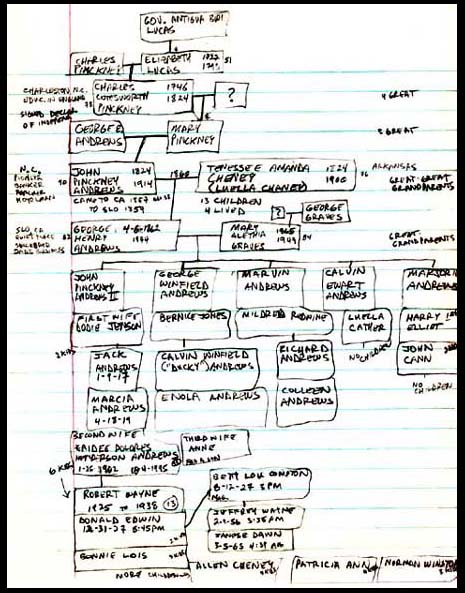 GOV. ANTIGUA BWI
LUCAS
CHARLES
PINCKNEY
ELIZABETH
LUCAS
1722
1793
CHARLESTON, N.C.
EDUC. IN ENGLAND
SIGNED DECLAR.
OF INDEPEN
CHARLES 1746
COTESWORTH 1824
PINCKNEY
?
4 GREAT
GEORGE
ANDREWS
MARY
PINCKNEY
3 GREAT
N.C.
BANKER
RANCHER
JOHN 1824
PINCKNEY
ANDREWS 1914
CAME TO CA 1857
TO SLO 1859
1860
TENESSEE AMANDA 1824
CHENEY
(LUELLA CHANEY) 1900
76
ARKANSAS
GREAT-GREAT
GRANDPARENTS
13 CHILDREN
4 LIVED
?
GEORGE
GRAVES
SLO, CA
GEORGE 4-6-1862
HENRY 1944
ANDREWS
82
MARY 1865
ALETHIA
GRAVES 1949
84
GREAT
GRANDPARENTS
JOHN
PINCKNEY
ANDREWS II
GEORGE
WINFIELD
ANDREWS
MARVIN
ANDREWS
CALVIN
EWART
ANDREWS
MARJORIE
ANDREWS
FIRST WIFE
DODIE JEPSON
BERNICE JONES
MILDRED RODNINE
LUELLA
CATHER
HARRY
ELLIOT
2 KIDS
JACK
ANDREWS
1-9-17
CALVIN WINFIELD
("DUCKY") ANDREWS
RICHARD
ANDREWS
NO CHILDREN
JOHN
CANN
MARCIA
ANDREWS
4-18-19
ENOLA ANDREWS
COLLEEN
ANDREWS
NO
CHILDREN
SECOND WIFE
HAIDEE DOLORES
HENDERSON ANDREWS
1-26-1902
THIRD WIFE
ANNE
6 KIDS
ROBERT WAYNE
1925 TO 1938 13
BETTY LOU COMPTON
8-12-27 3 PM
DONALD EDWIN
12-31-27 8:45PM
JEFFREY WAYNE
2-2-56 3:35AM
JANESE DAWN
3-5-63 4:39 AM
BONNIE LOIS
MORE CHILDREN
ALLEN CHENEY
PATRICIA ANN
NORMAN WINSTON